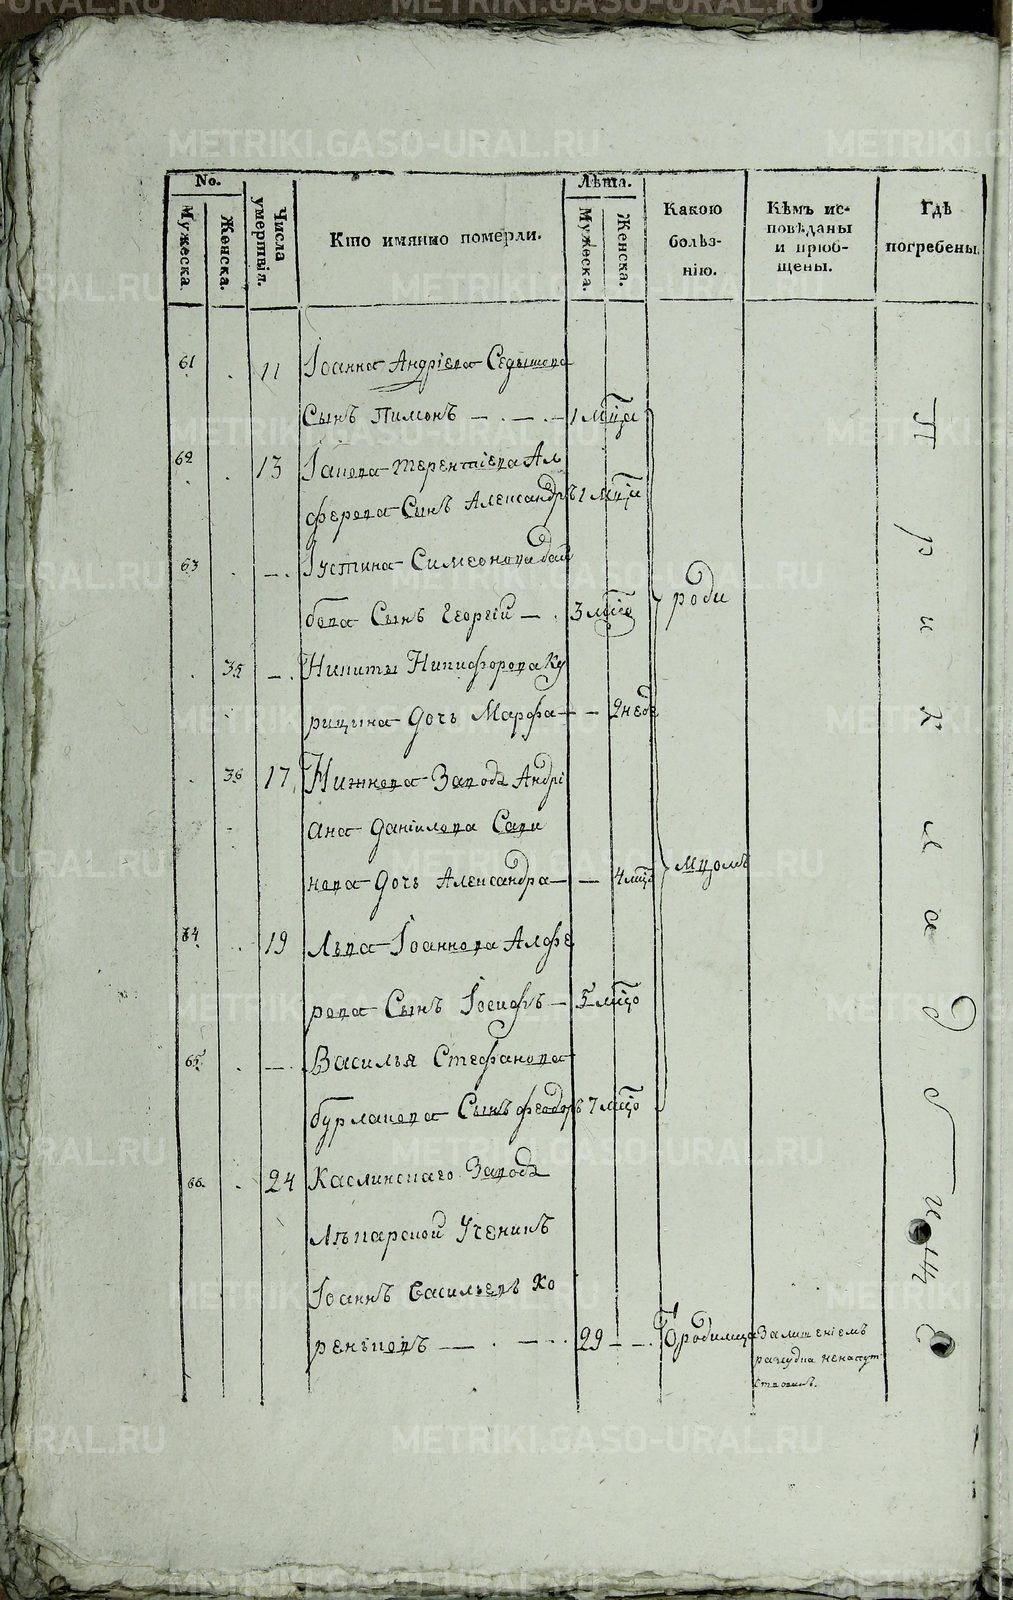 No.
Лѣта.
Мужеска
Женска.
Числа умершвія.
Кто имянно померли.
Мужеска.
Женска.
Какою болѣз-нію.
Кѣмъ ис-
повѣданы
и пріоб-
щены.
Гдѣ
погребены.
61 11 Іоанна Андріева Седышева
Сынъ Пименъ 1 мца
62 13 Іакова Терентіева Ал
ферова Сынъ Александръ 1 мца
63 Іустина Симеонова
бова Сынъ Георгій 3 мцо
роди
35 Никиты Никифорова Ку
рицына дочь Марфа 2 неде
36 17 Нижнева Завода Андрі
ана Даніилова Сави
нова дочь Александра 4 мцо
мцомъ
64 19 Льва Іоаннова Алфе
рова Сынъ Іосифъ 5 мцо
65 Василья Стефанова
бурлакова Сынъ феодоръ 7 мцо
66 24 Каслинскаго Завода
Лѣкарской Ученикъ
Іоаннъ Васильевъ Ко
ренговъ 29
За лишеніемъ
Прикладбище
METRIKI.GASO-URAL.RU